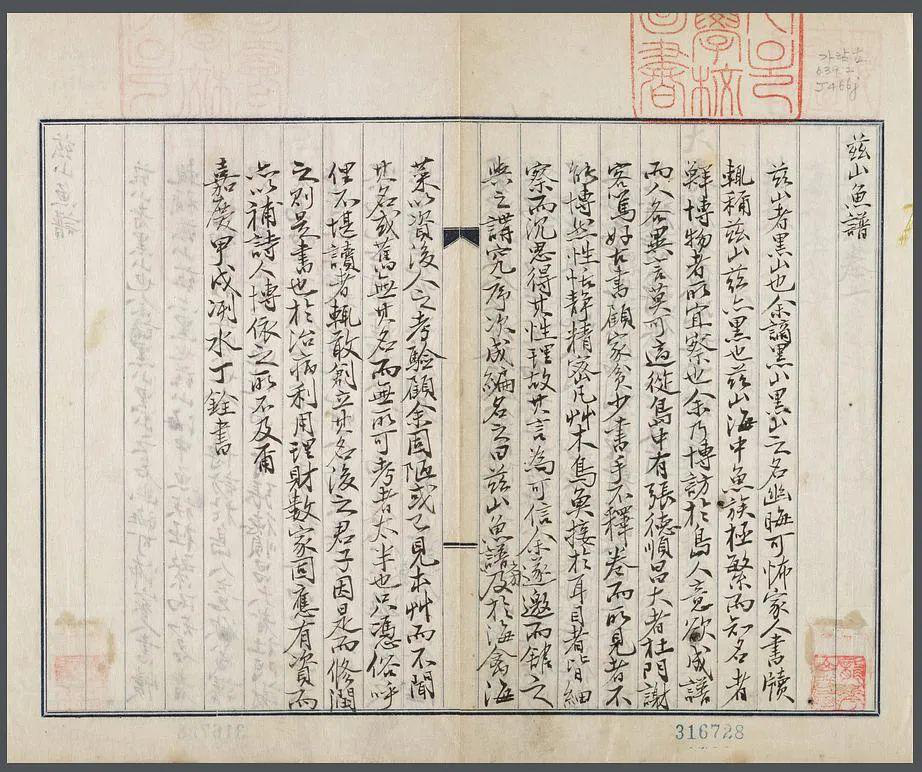 茲山魚譜
茲山者黑山也余謫黑山黑山之名幽晦可怖家人書牘
輒稱茲山茲亦黑也茲山海中魚族極繁而知名者
鮮博物者所宜察也余乃博訪於島人意欲成譜
而人各異言莫可適從島中有張德順昌大者杜門謝
客篤好古書顧家貧少書手不釋卷而所見者不
能博然性恬靜精密凡艸木鳥魚接於耳目者皆細
察而沉思得其性理故其言為可信余遂邀而館之
與之講究序次成編名之曰茲山魚譜旁及於海禽海
菜以資後人之考驗顧余固陋或已見本艸而不聞
其名或舊無其名而無所可考者太半也只憑俗呼
俚不堪讀者輒敢創立其名後之君子因是而修潤
之則是書也於治病利用理財數家固應有資而
亦以補詩人博依之所不及爾
嘉慶甲戌洌水丁銓書
學校
圖書
가람古
639.2
J466j
316728